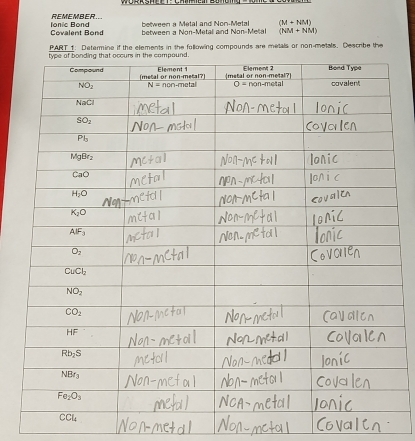 WORKSHEET: Chemical Bonding - Ionic & Covalent
REMEMBER...
Ionic Bond between a Metal and Non-Metal (M + NM)
Covalent Bond between a Non-Metal and Non-Metal (NM + NM)
PART 1: Determine if the elements in the following compounds are metals or non-metals. Describe the
type of bonding that occurs in the compound.
Compound Element 1 (metal or non-metal?) Element 2 (metal or non-metal?) Bond Type
NO₂ N = non-metal O = non-metal covalent
NaCl metal Non-metal Ionic
SO₂ Non-metal Covalen
PI₃
MgBr₂ metal Non-metall Ionic
CaO metal non-metal Ionic
H₂O Non-metal Non-metal covalen
K₂O metal Non-metal Ionic
AlF₃ metal Non-metal Ionic
O₂ non-metal Covalen
CuCl₂
NO₂
CO₂ Non-metal Non-metal Covalen
HF Non-metal Non metal Covalen
Rb₂S metall Non-metal Ionic
NBr₃ Non-metal Non-metal Covalen
Fe₂O₃ metal Non-metal Ionic
CCl₄ Non-metal Non-metal Covalen